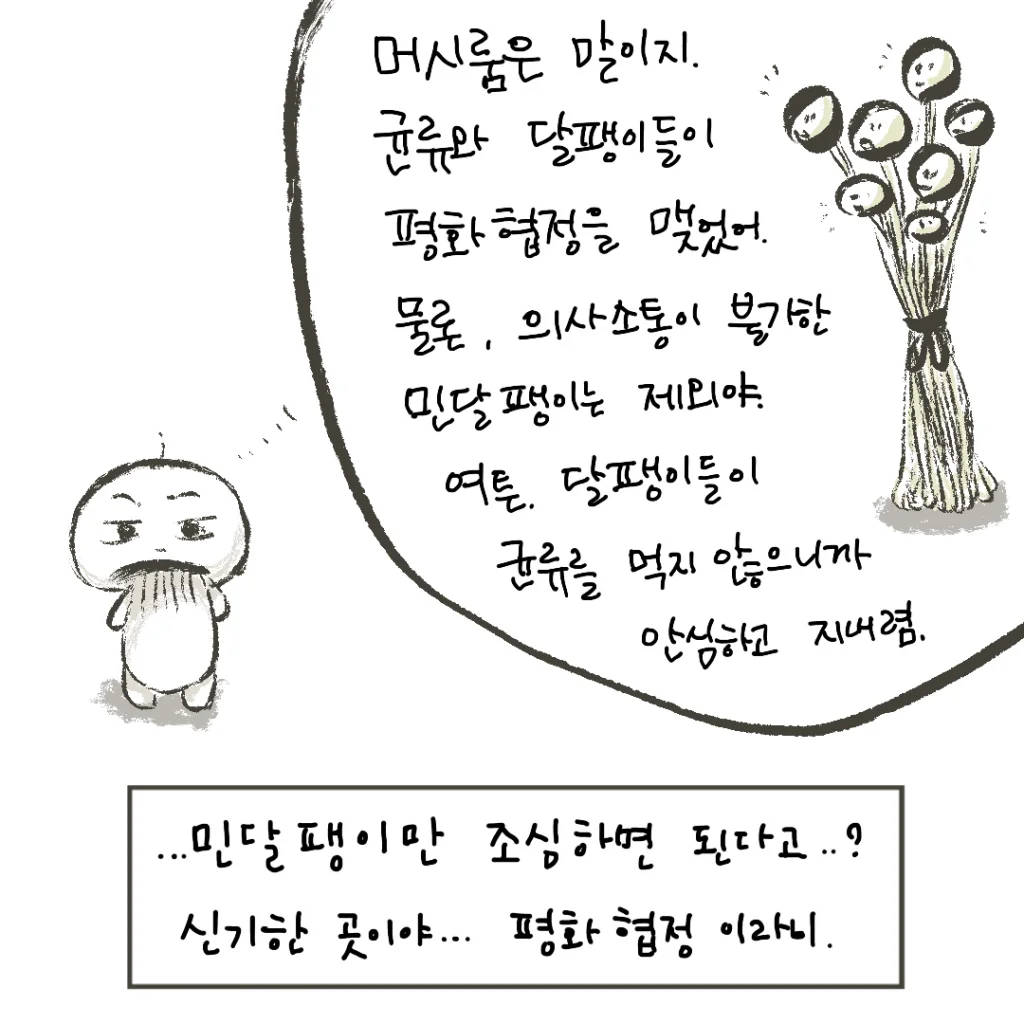 머시룸은 말이지.
균류와 달팽이들이
평화협정을 맺었어.
물론, 의사소통이 불가한
민달팽이는 제외야.
여튼. 달팽이들이
균류를 먹지 않으니까
안심하고 지내렴.
...민달팽이만 조심하면 된다고..?
신기한 곳이야... 평화협정이라니.